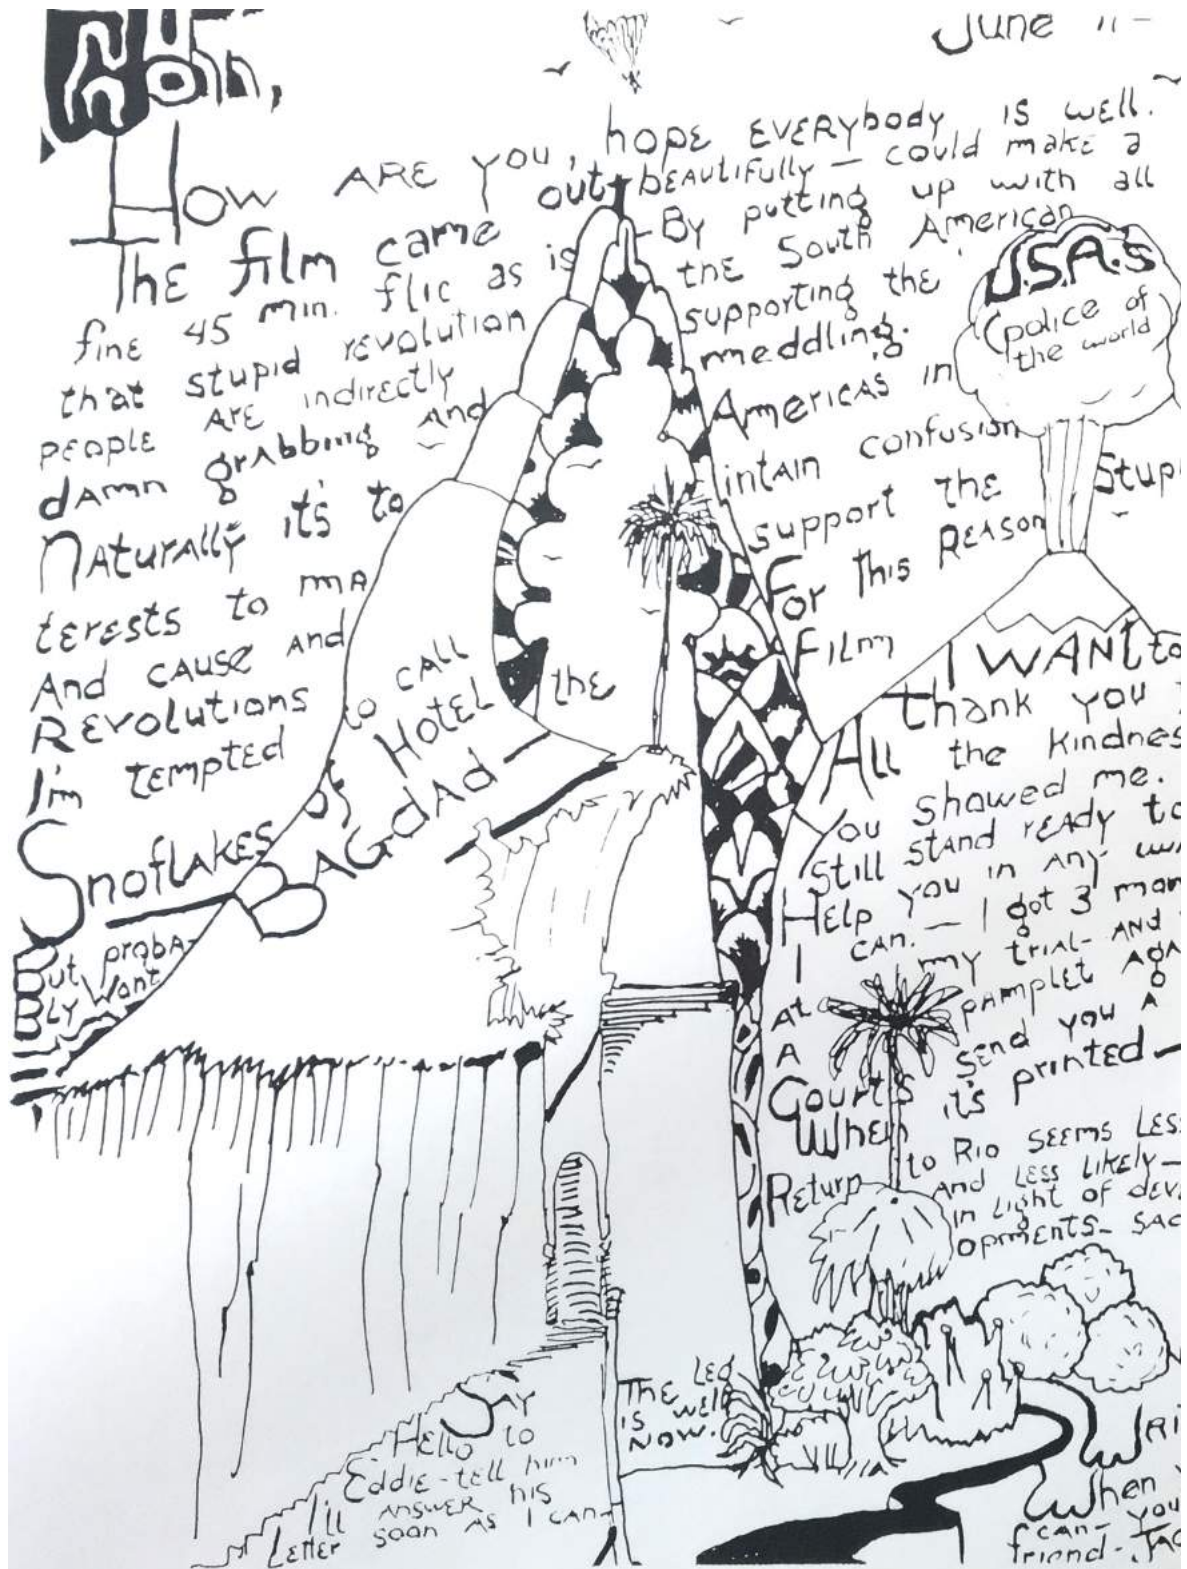 June 11 -
How ARE you, hope EVERYbody is well.
The film came out beautifully — could make a
fine 45 min. flic as is — By putting up with all
that stupid revolution the South American
people are indirectly supporting the U.S.A.s
(police of
the world)
damn grabbing and meddling.
Naturally it's to Americas in
terests to maintain confusion
And cause and support the
Revolutions For this Reason
I'm tempted to call the Film
Snoflakes of Hotel
BAGdAd —
But proba-
Bly Want
I WANT to
thank you
All the
you showed me.
Still stand ready to
Help you in any
I can. — I got 3
At my trial - AND
A pamplet
Courts send you A
When it's printed —
Return to Rio seems Less
And Less Likely —
in Light of
opments -
Say
Hello to
Eddie - tell him
I'll answer his
Letter soon as I can -
The Leg
is well
now.
When
can - your
friend -